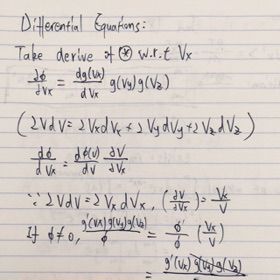 Differential Equations:
Take derive of ⊛ w.r.t Vx
∂φ/∂Vx = dg(Vx)/dVx g(Vy)g(Vz)
(2VdV = 2VxdVx + 2VydVy + 2VzdVz)
dφ/dVx = dφ(V)/dV ∂V/∂Vx
∵ 2VdV = 2VxdVx, (∂V/∂Vx) = Vx/V
If φ≠0, g'(Vx)g(Vy)g(Vz)/φ = φ'/φ (Vx/V)
= g'(Vx)g(Vy)g(Vz)